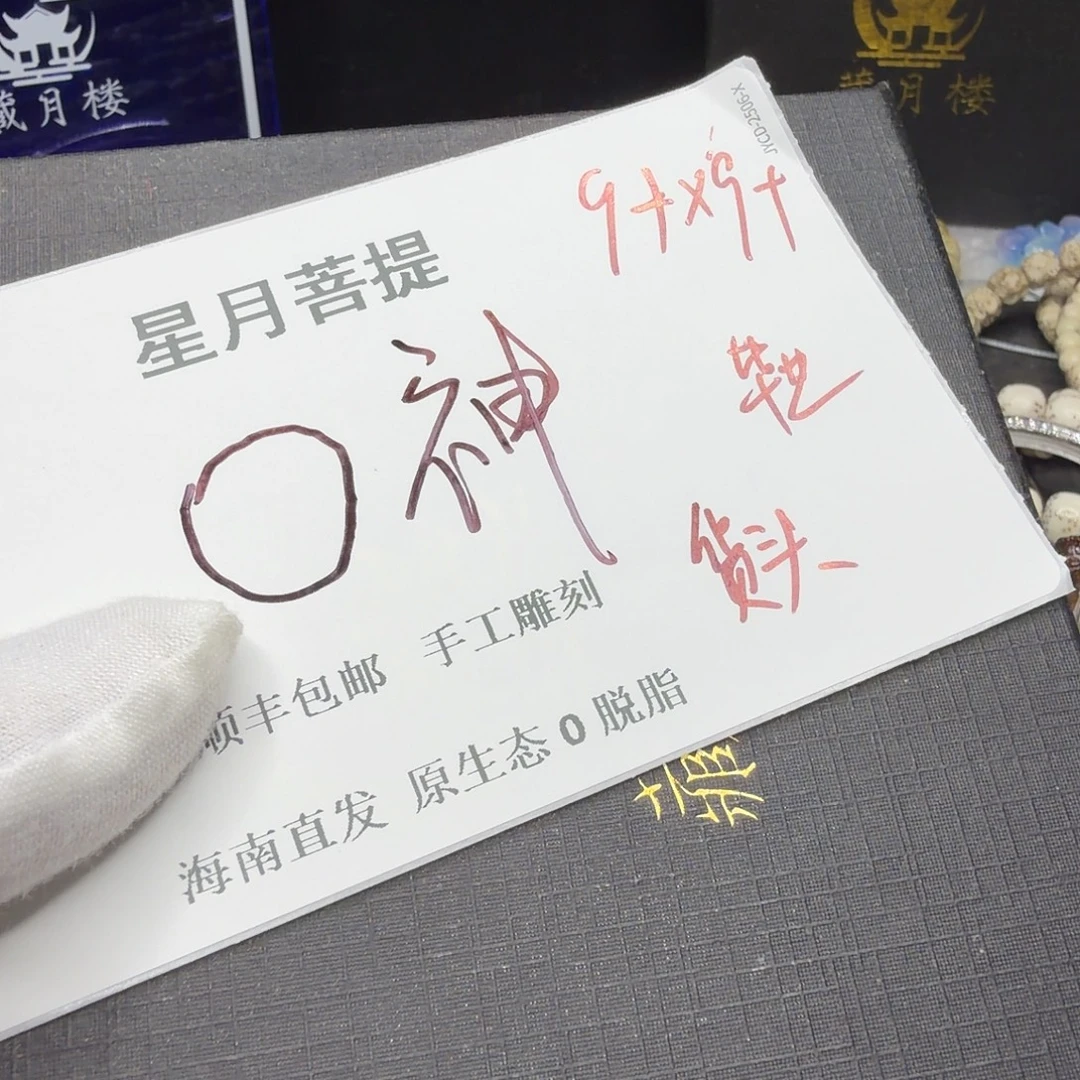 藏月楼
藏月楼
JYCD-2506-X
9+x9+
星月菩提
〇神
货头
顺丰包邮 手工雕刻
海南直发 原生态0脱脂